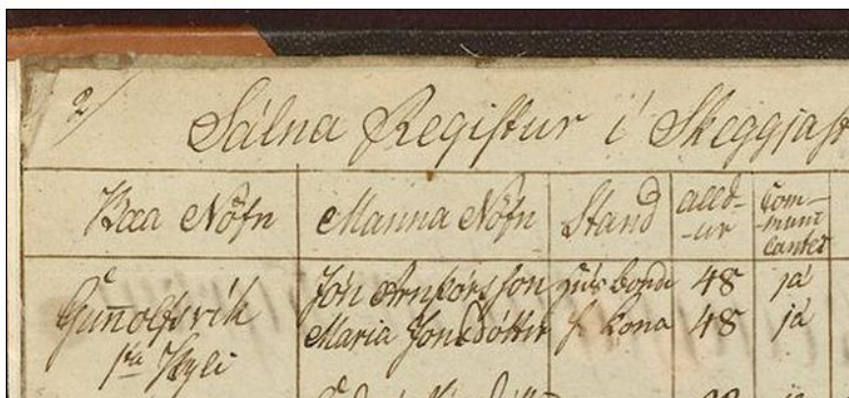 2/
Sálna Registur í Skeggjast
Bæa Nöfn
Manna Nöfn
Stand
alld-
-ur
Com-
-muni
cantes
Gunnolfsvík
1ta Hyli
Jón Arnþórsson húsbondi 48 já
Maria Jonsdóttir h kona 48 já